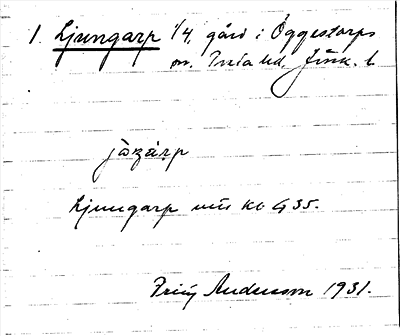 1. Ljungarp 1/4, gård i Öggestorps
sn. Tveta hd. Jönk. l.
jöŋarp
Ljungarp
Andersson 1931.